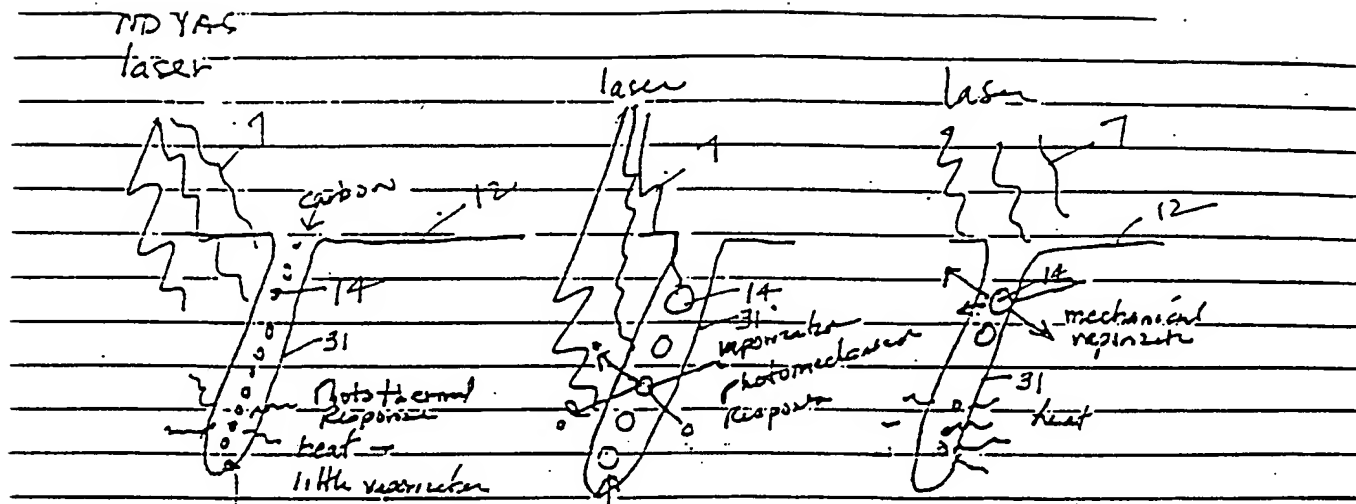 ND YAG
laser
7
carbon
12
14
31
Photothermal
Response
heat →
little vaporization
laser
7
14
31
vaporization
photomechanical
Response
laser
7
12
14
mechanical
31
heat